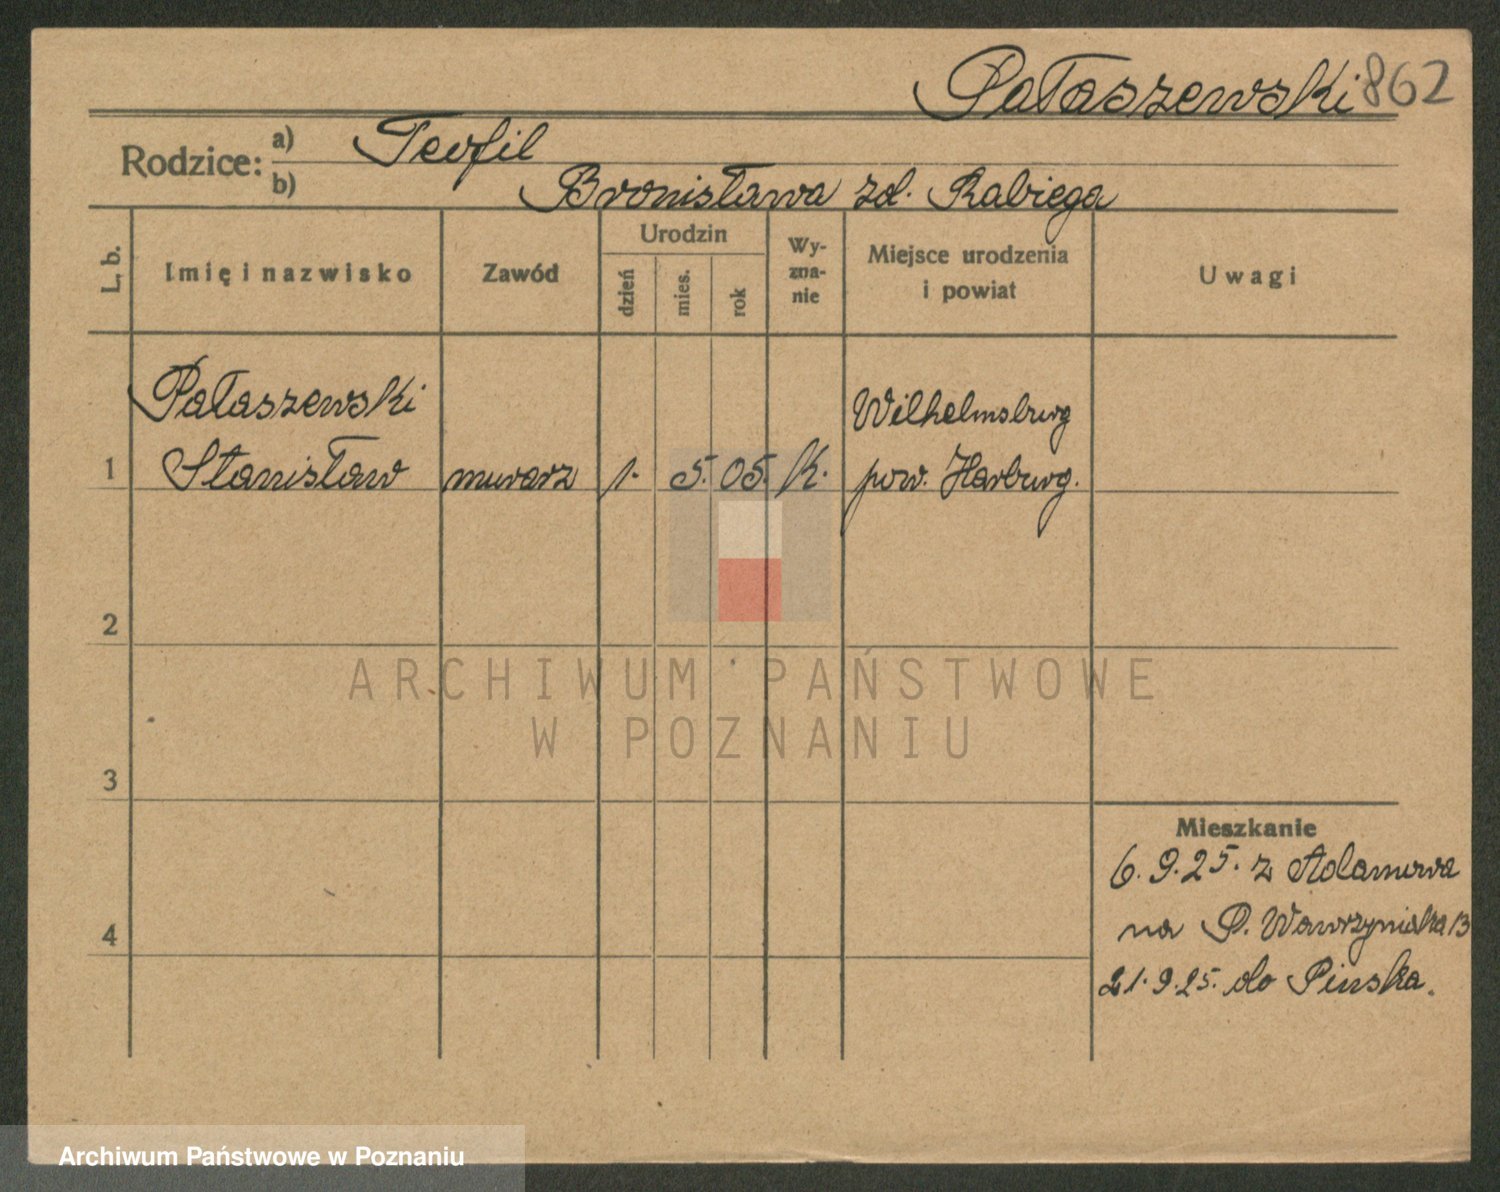 Pałaszewski 862
Rodzice: a) Teofil
b) Bronisława zd. Rabiega
L. b.
Imię i nazwisko
Zawód
Urodzin
dzień
mies.
rok
Wy-
zna-
nie
Miejsce urodzenia
i powiat
Uwagi
Pałaszewski
Wilhelmsburg
1 Stanisław murarz 1. 5. 05. K. pow. Harburg.
2
3
4
Mieszkanie
6.9.25. z Adamowa
na P. Wawrzyniaka 13
21.9.25. do Pinska.
ARCHIWUM PAŃSTWOWE
W POZNANIU
Archiwum Państwowe w Poznaniu